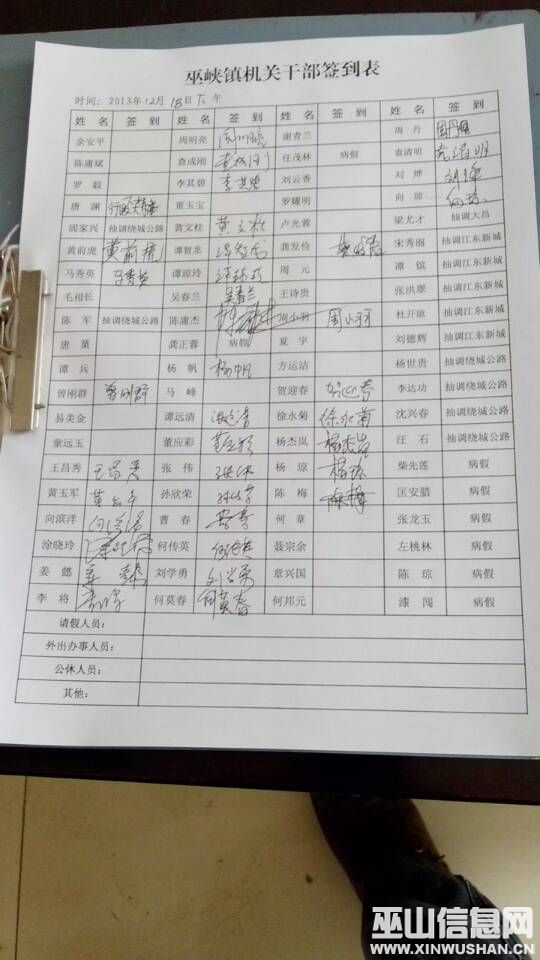 巫峡镇机关干部签到表
时间：2013年12月18日下午
姓名 签到 姓名 签到 姓名 签到 姓名 签到
余安平 周明亮 周明亮 谢青兰 周丹 周丹
陈庸斌 查成刚 查成刚 任茂林 病假 袁清明
罗毅 李其碧 李其碧 刘云香 刘烨 刘烨
唐渊 童玉宝 罗耀明 向琼 向琼
阎家兴 抽调绕城公路 黄文柱 黄文柱 卢光蓉 梁尤才 抽调大昌
黄前虎 黄前虎 谭智龙 谭智龙 龚发俭 宋秀丽 抽调江东新城
马秀英 马秀英 谭琼玲 谭琼玲 周元 谭镔 抽调江东新城
毛相长 吴春兰 吴春兰 王诗贵 张洪翠 抽调江东新城
陈军 抽调绕城公路 陈庸杰 周小羽 周小羽 杜开琼 抽调江东新城
唐菓 龚正蓉 病假 夏宇 刘德辉 抽调江东新城
谭兵 杨帆 杨帆 方运洁 杨世贵 抽调绕城公路
曾刚群 曾刚群 马峰 贺迎春 贺迎春 李达功 抽调绕城公路
易美金 谭远清 徐永菊 徐永菊 沈兴春 抽调绕城公路
童远玉 董应彩 董应彩 杨杰岚 杨杰岚 汪石 抽调绕城公路
王昌秀 王昌秀 张伟 张伟 杨琼 杨琼 柴先莲 病假
黄玉军 黄玉军 孙欣荣 陈梅 陈梅 匡安腊 病假
向滨洋 向滨洋 曹春 何章 张龙玉 病假
涂晓玲 何传英 何传英 聂宗余 左桃林 病假
姜懿 刘学勇 刘学勇 章兴国 陈琼 病假
李将 何莫春 何邦元 漆闯 病假
请假人员：
外出办事人员：
公休人员：
其他：
巫山信息网
WWW.XINWUSHAN.CN